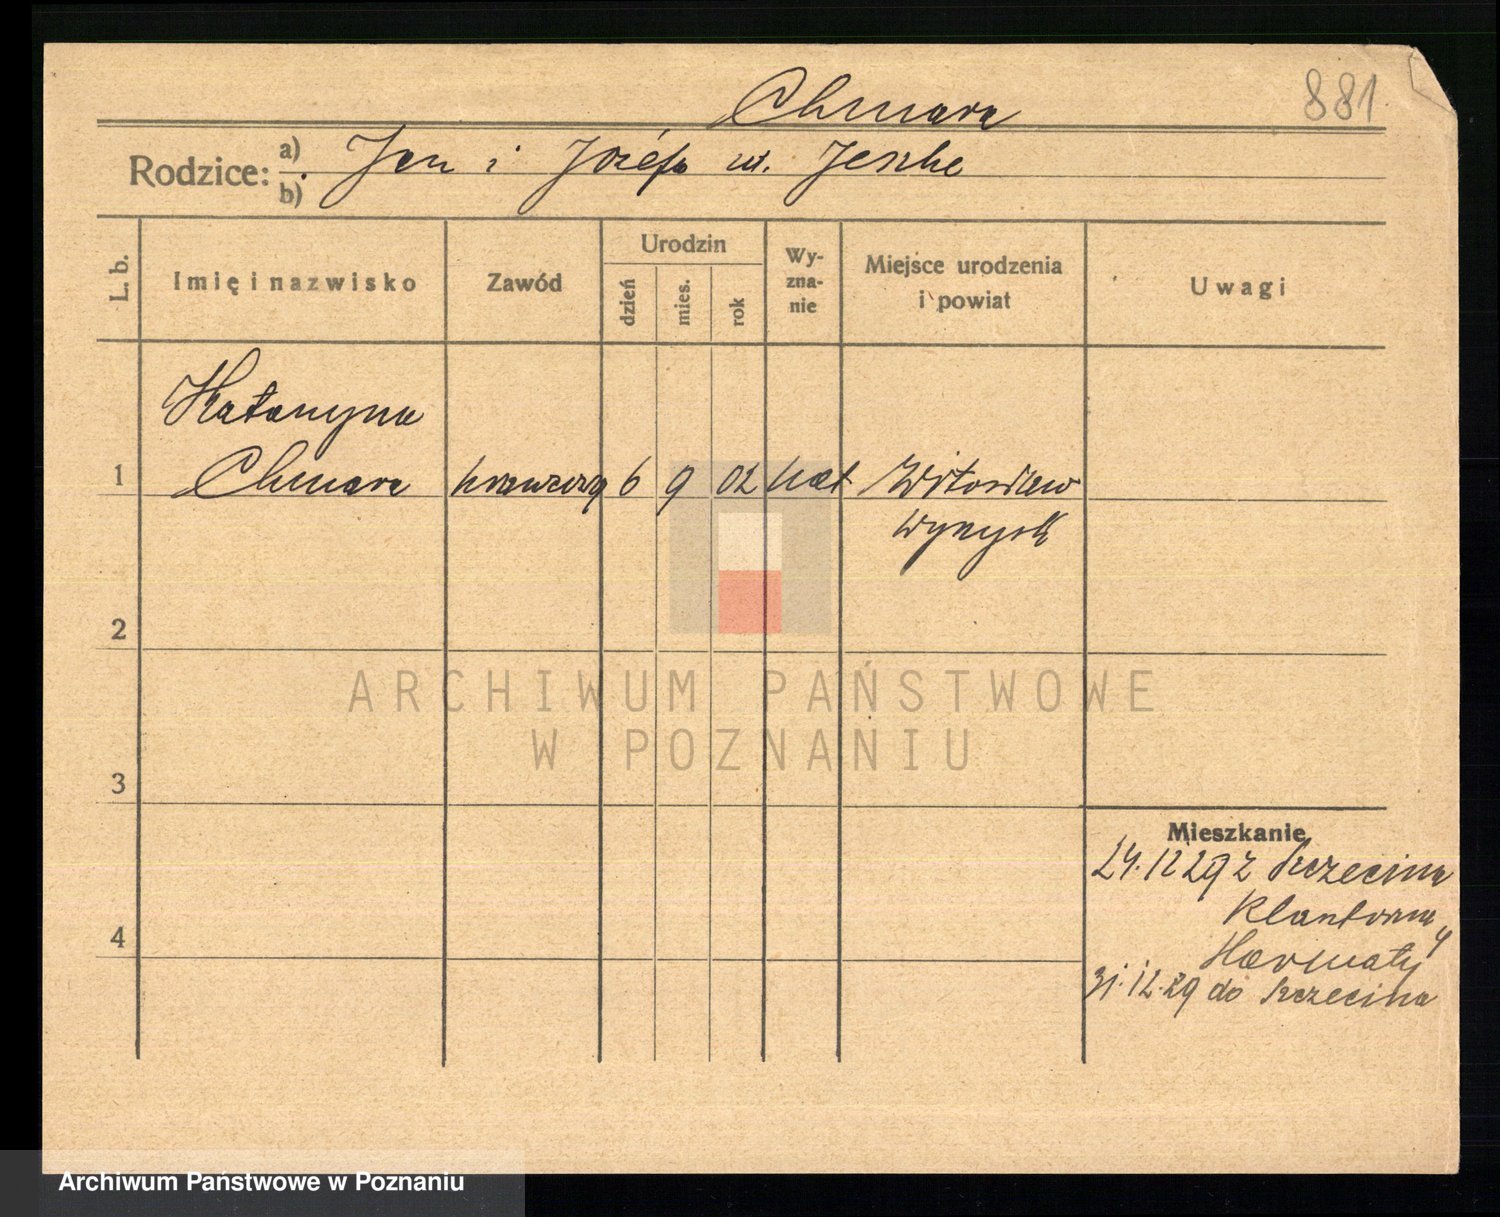 Chmara
881
Rodzice: a) b) Jan i Józefa ur. Jeszke
L. b.
Imię i nazwisko
Zawód
Urodzin
dzień
mies.
rok
Wy-
zna-
nie
Miejsce urodzenia
i powiat
Uwagi
Katarzyna
1 Chmara krawcowa 6 9 02 kat Witosław
Wyrzysk
2
3
4
ARCHIWUM PAŃSTWOWE
W POZNANIU
Mieszkanie
24.12 29 z
Harmaty
31.12.29 do
Archiwum Państwowe w Poznaniu